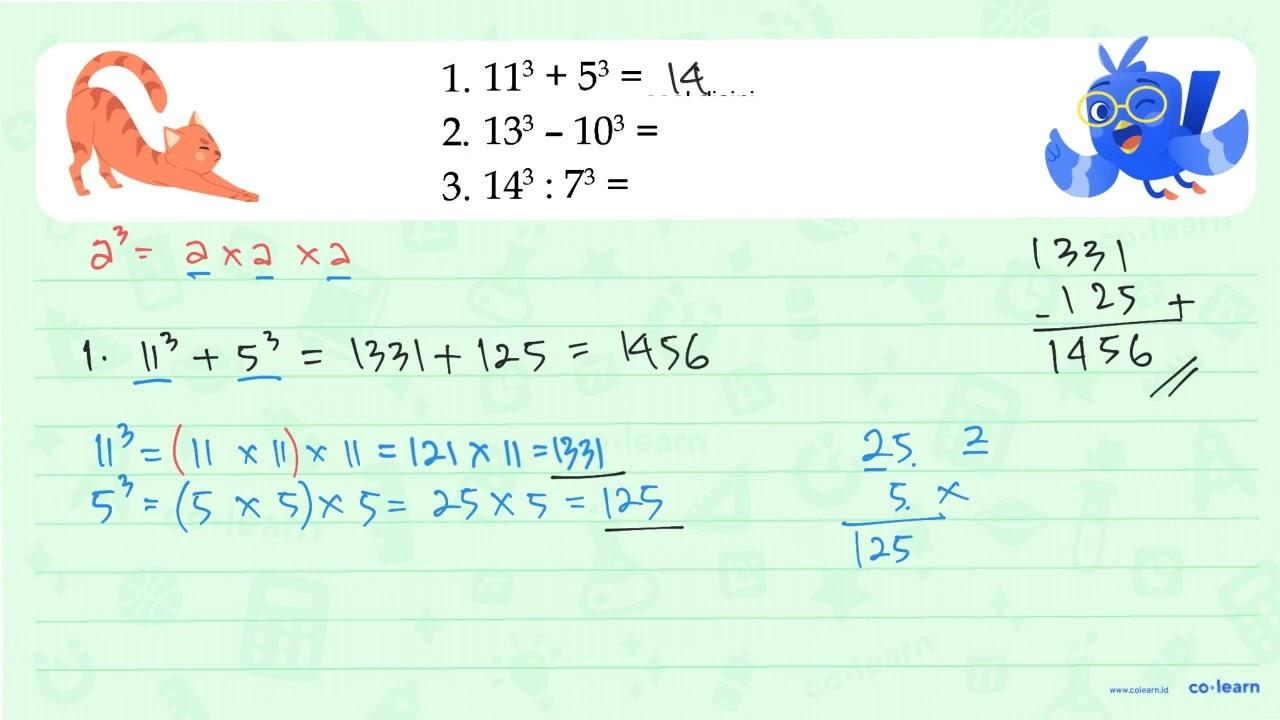 1. 11³ + 5³ = 14
2. 13³ – 10³ =
3. 14³ : 7³ =
2³ = 2 × 2 × 2
1331
125 +
1456
1. 11³ + 5³ = 1331 + 125 = 1456
11³ = (11 × 11) × 11 = 121 × 11 = 1331
5³ = (5 × 5) × 5 = 25 × 5 = 125
25 2
5 ×
125
www.colearn.id co·learn